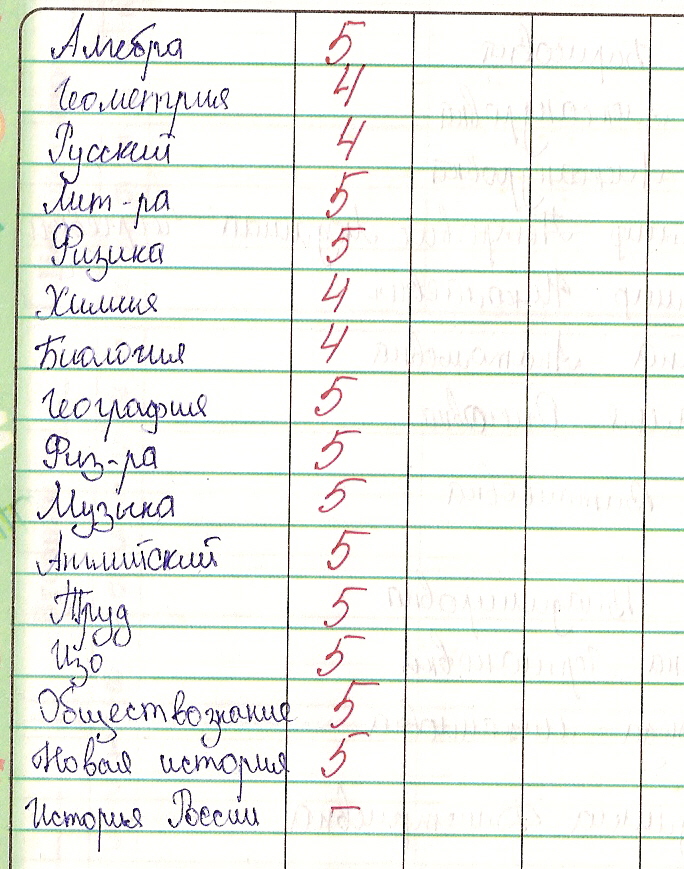 Алгебра 5
Геометрия 4
Русский 4
Лит-ра 5
Физика 5
Химия 4
Биология 4
География 5
Физ-ра 5
Музыка 5
Английский 5
Труд 5
Изо 5
Обществознание 5
Новая история 5
История России –